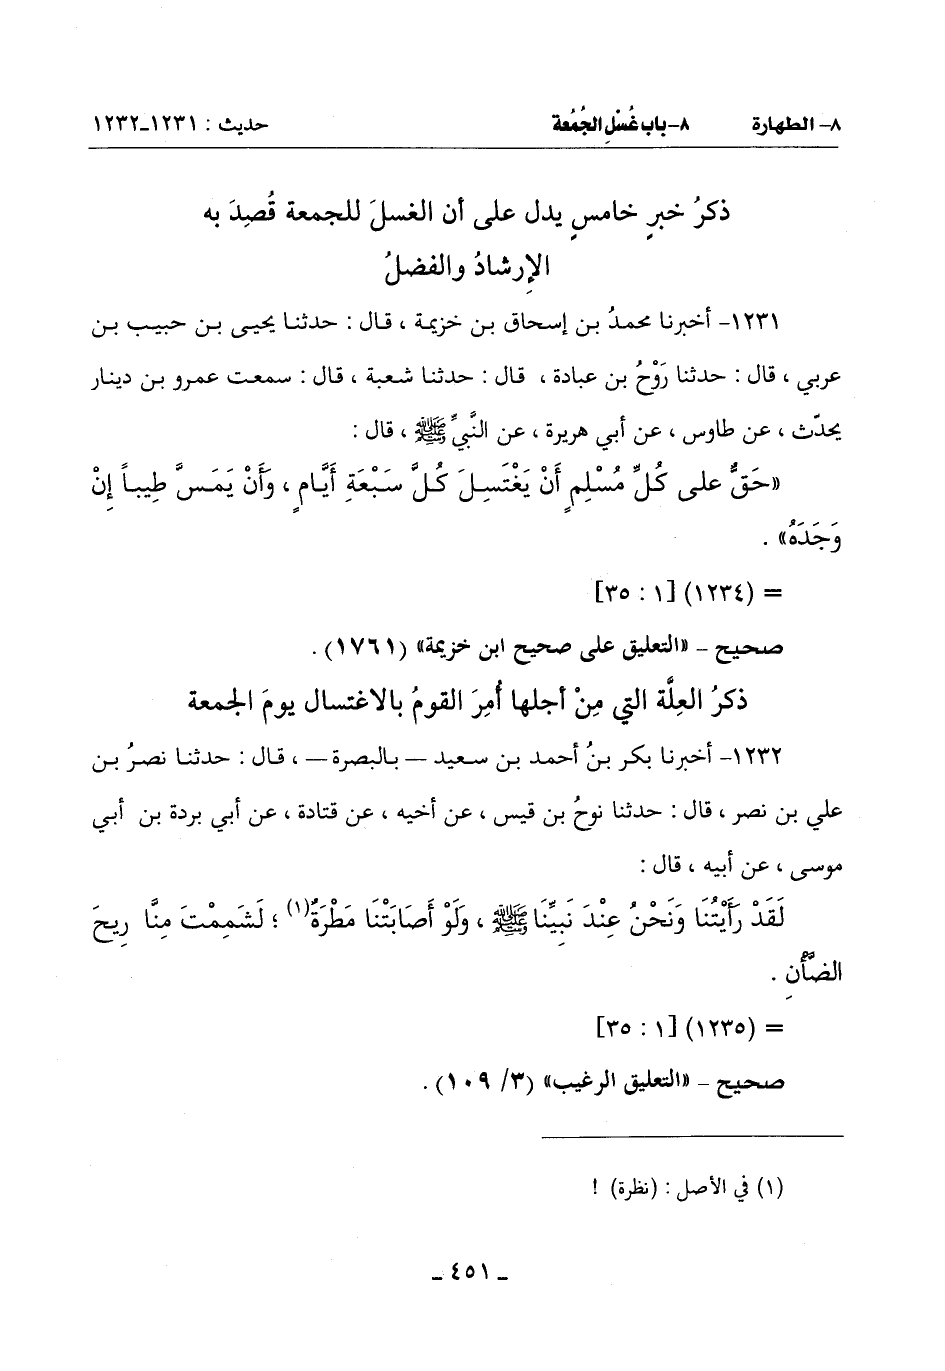 ٨- الطهارة ٨- باب غُسْلِ الجُمُعة حديث : ١٢٣١-١٢٣٢
ذكرُ خبرٍ خامسٍ يدل على أن الغسلَ للجمعة قُصِدَ به
الإرشادُ والفضلُ
١٢٣١- أخبرنا محمدُ بن إسحاق بن خزيمة ، قال : حدثنا يحيى بن حبيب بن
عربي ، قال : حدثنا رَوْحُ بن عبادة ، قال : حدثنا شعبة ، قال : سمعت عمرو بن دينار
يحدّث ، عن طاوس ، عن أبي هريرة ، عن النَّبيِّ ﷺ ، قال :
«حَقٌّ على كُلِّ مُسْلِمٍ أَنْ يَغْتَسِلَ كُلَّ سَبْعَةِ أَيَّامٍ ، وَأَنْ يَمَسَّ طِيباً إِنْ
وَجَدَهُ» .
= (١٢٣٤) [١ : ٣٥]
صحيح - «التعليق على صحيح ابن خزيمة» (١٧٦١) .
ذكرُ العِلَّة التي مِنْ أجلها أُمِرَ القومُ بالاغتسال يومَ الجمعة
١٢٣٢- أخبرنا بكر بنُ أحمد بن سعيد — بالبصرة — ، قال : حدثنا نصرُ بن
علي بن نصر ، قال : حدثنا نوحُ بن قيس ، عن أخيه ، عن قتادة ، عن أبي بردة بن أبي
موسى ، عن أبيه ، قال :
لَقَدْ رَأَيْتُنَا وَنَحْنُ عِنْدَ نَبِيِّنَا ﷺ ، وَلَوْ أَصَابَتْنَا مَطْرَةٌ(١) ؛ لَشَمِمْتَ مِنَّا رِيحَ
الضَّأْنِ .
= (١٢٣٥) [١ : ٣٥]
صحيح - «التعليق الرغيب» (٣/ ١٠٩) .
(١) في الأصل : (نظرة) !
- ٤٥١ -